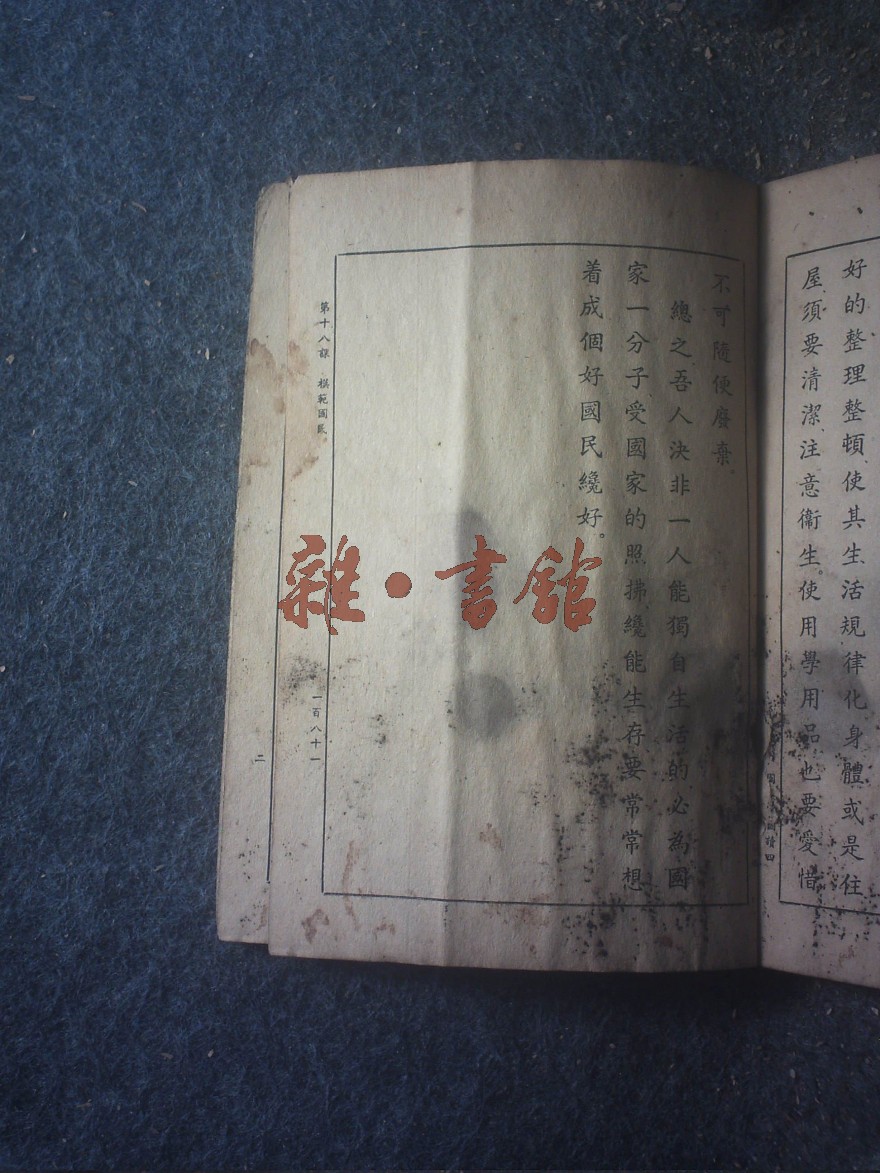 好的整理整頓、使其生活規律化、身體或是住
屋、須要清潔、注意衞生。使用學用品、也要愛惜、
不可隨便廢棄。
總之吾人決非一人能獨自生活的、必為國
家一分子、受國家的照拂、纔能生存、要常常想
着成個好國民纔好。
第十八課 模範國民
一百八十一
二
雜·書館